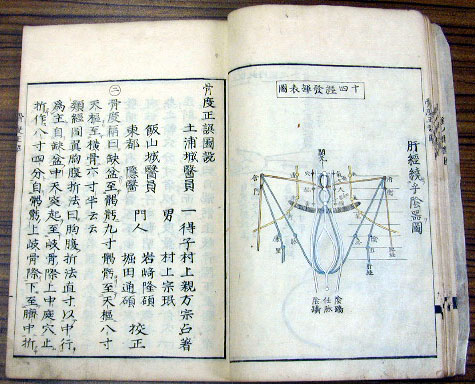 十四經發揮表圖
肝經繞于陰器圖
陰蹻
任脉
陰蹻
骨度正誤圖說
土浦城醫員 一得子村上親方宗占著
男 村上宗珉
飯山城醫員 門人 岩崎隆碩
東都 隱醫 堀田通碩 校正
二
骨度篇曰缺盆至𩩲骬九寸𩩲骬至天樞八寸
天樞至橫骨六寸半云云
類經圖翼胸腹折法曰胸腹折法直寸以中行
為主自缺盆中天突起至岐骨際上中庭穴止
折作八寸四分自𩩲骬上岐骨際下至臍中折